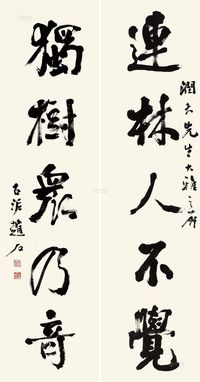 連林人不覺
潤夫先生大雅之屬
獨樹衆乃奇
古泥趙石